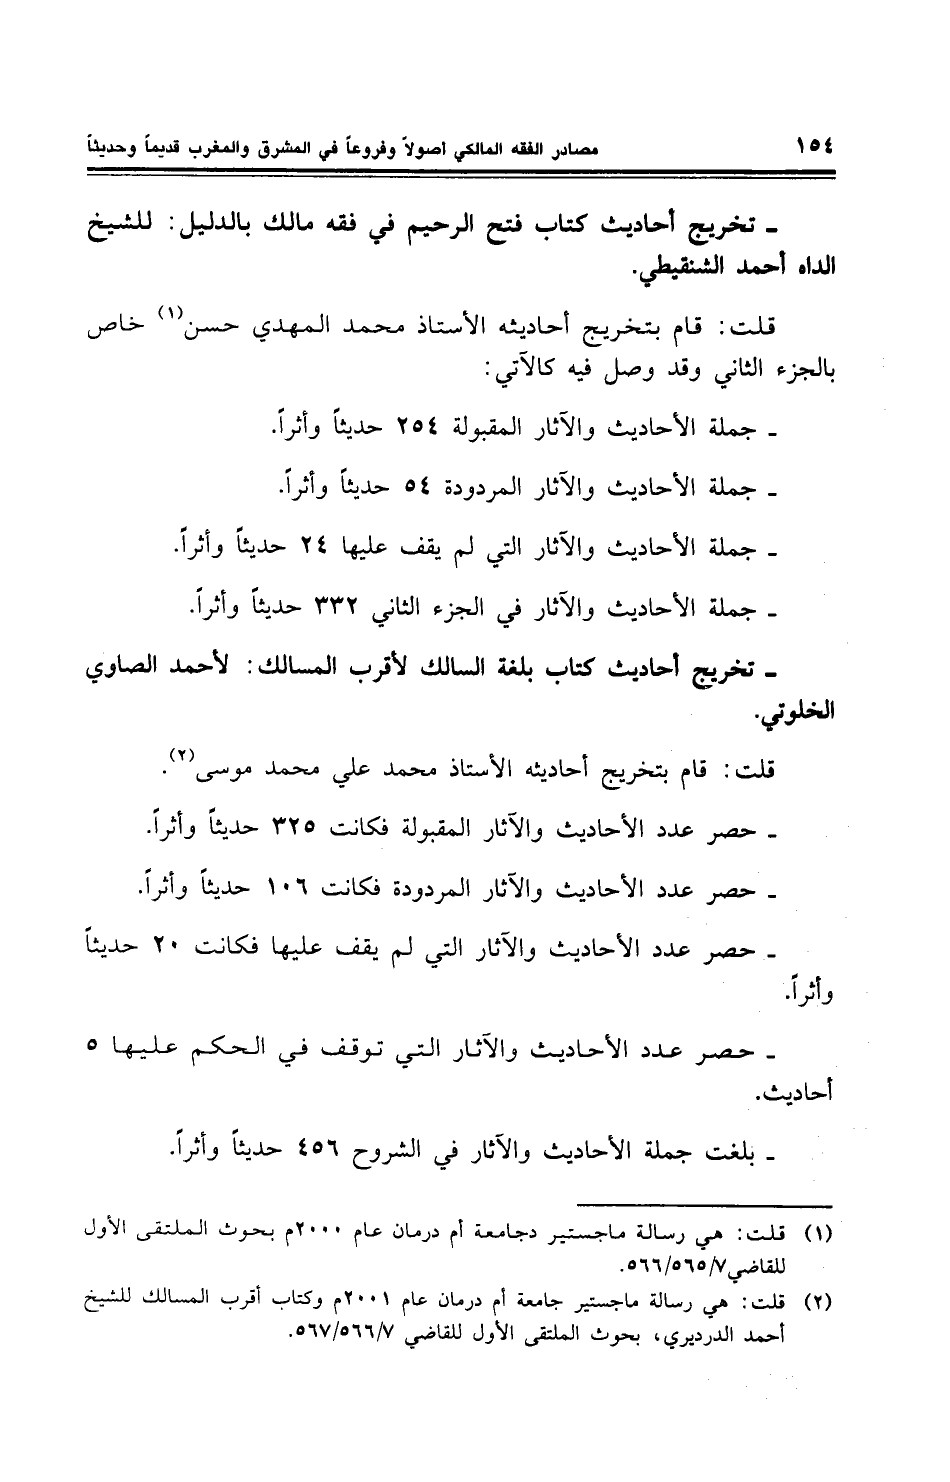 ١٥٤ مصادر الفقه المالكي أصولاً وفروعاً في المشرق والمغرب قديماً وحديثاً
ـ تخريج أحاديث كتاب فتح الرحيم في فقه مالك بالدليل: للشيخ
الداه أحمد الشنقيطي.
قلت: قام بتخريج أحاديثه الأستاذ محمد المهدي حسن(١) خاص
بالجزء الثاني وقد وصل فيه كالآتي:
ـ جملة الأحاديث والآثار المقبولة ٢٥٤ حديثاً وأثراً.
ـ جملة الأحاديث والآثار المردودة ٥٤ حديثاً وأثراً.
ـ جملة الأحاديث والآثار التي لم يقف عليها ٢٤ حديثاً وأثراً.
ـ جملة الأحاديث والآثار في الجزء الثاني ٣٣٢ حديثاً وأثراً.
ـ تخريج أحاديث كتاب بلغة السالك لأقرب المسالك: لأحمد الصاوي
الخلوتي.
قلت: قام بتخريج أحاديثه الأستاذ محمد علي محمد موسى(٢).
ـ حصر عدد الأحاديث والآثار المقبولة فكانت ٣٢٥ حديثاً وأثراً.
ـ حصر عدد الأحاديث والآثار المردودة فكانت ١٠٦ حديثاً وأثراً.
ـ حصر عدد الأحاديث والآثار التي لم يقف عليها فكانت ٢٠ حديثاً
وأثراً.
ـ حصر عدد الأحاديث والآثار التي توقف في الحكم عليها ٥
أحاديث.
ـ بلغت جملة الأحاديث والآثار في الشروح ٤٥٦ حديثاً وأثراً.
(١) قلت: هي رسالة ماجستير دجامعة أم درمان عام ٢٠٠٠م بحوث الملتقى الأول
للقاضي٥٦٦/٥٦٥/٧.
(٢) قلت: هي رسالة ماجستير جامعة أم درمان عام ٢٠٠١م وكتاب أقرب المسالك للشيخ
أحمد الدرديري، بحوث الملتقى الأول للقاضي ٥٦٧/٥٦٦/٧.